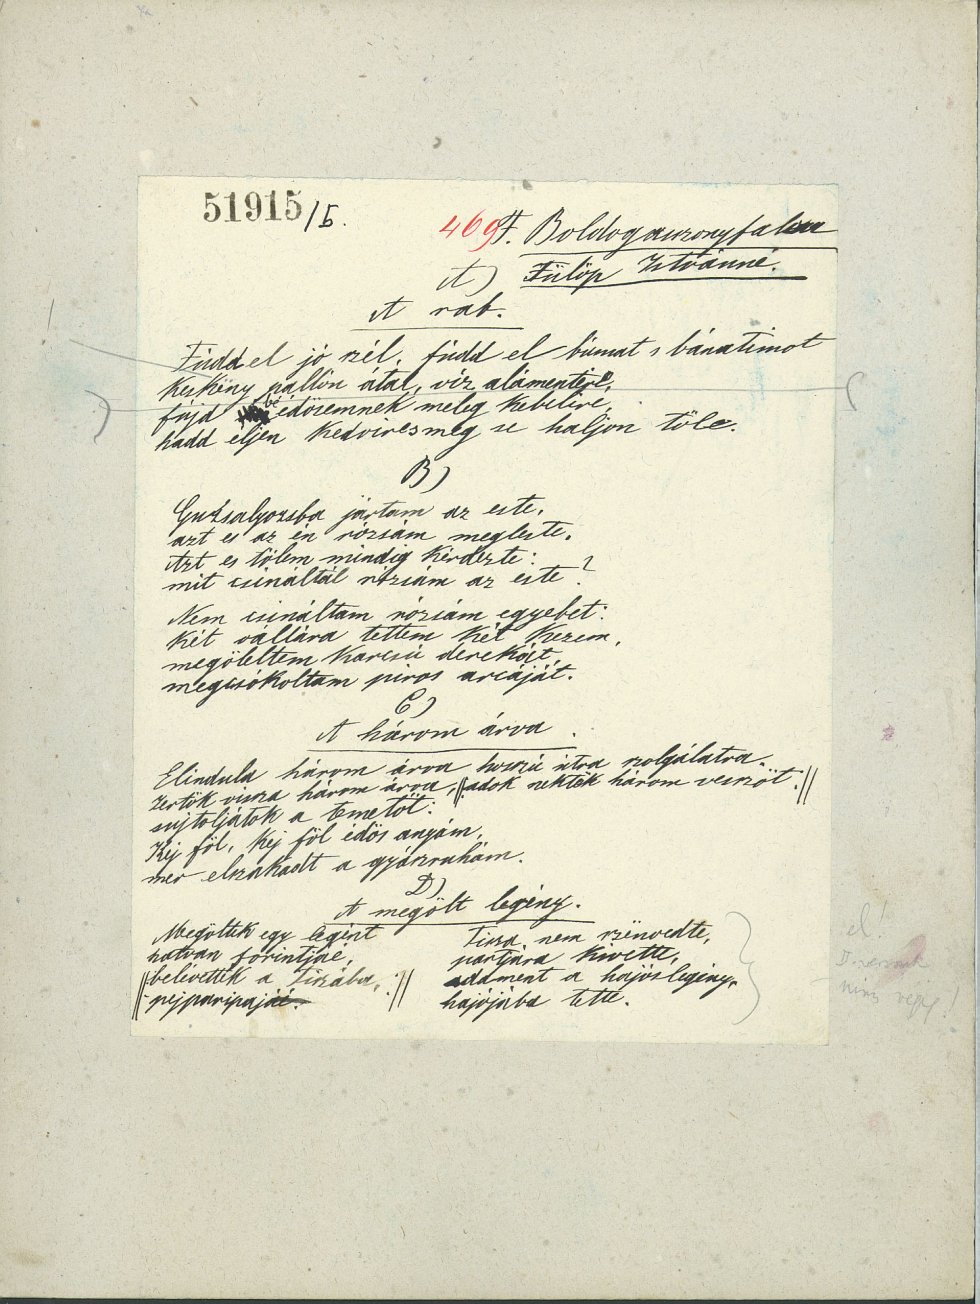 51915/5.
469 F. Boldogasszonyfalva
Fülöp Istvánné.
A)
A rab.
Fúdd el jó szél, fúdd el búmat s bánatimot
keskëny pallón által, víz alámentire,
fújd bé édösemnek meleg kebelire,
hadd éljen kedvires meg se haljon tőle.
B)
Guzsalyozsba jártam az este,
azt es az én rózsám megleste.
Azt es tőlem mindig kérdezte:
mit csináltál rózsám az este?
Nem csináltam rózsám egyebet:
két vállára tettem két kezem,
megöleltem karcsú derekát,
megcsókoltam piros arcáját.
C)
A három árva.
Elindula három árva hosszú útra szolgálatra.
Tértök vissza három árva, || adok nektëk három vesszőt: ||
sujtoljátok a temetőt:
Kéj föl, kéj föl édös anyám,
mer elszakadt a gyászruhám.
D)
A megölt legény.
Megöltek egy legént
hatvan forintjáé,
|| belévették a Tiszába, :||
pejparipájáé.
Tisza nem szënvedte,
partjára kivette,
adament a hajóslegény,
hajójába tette.
el!
nincs vége!